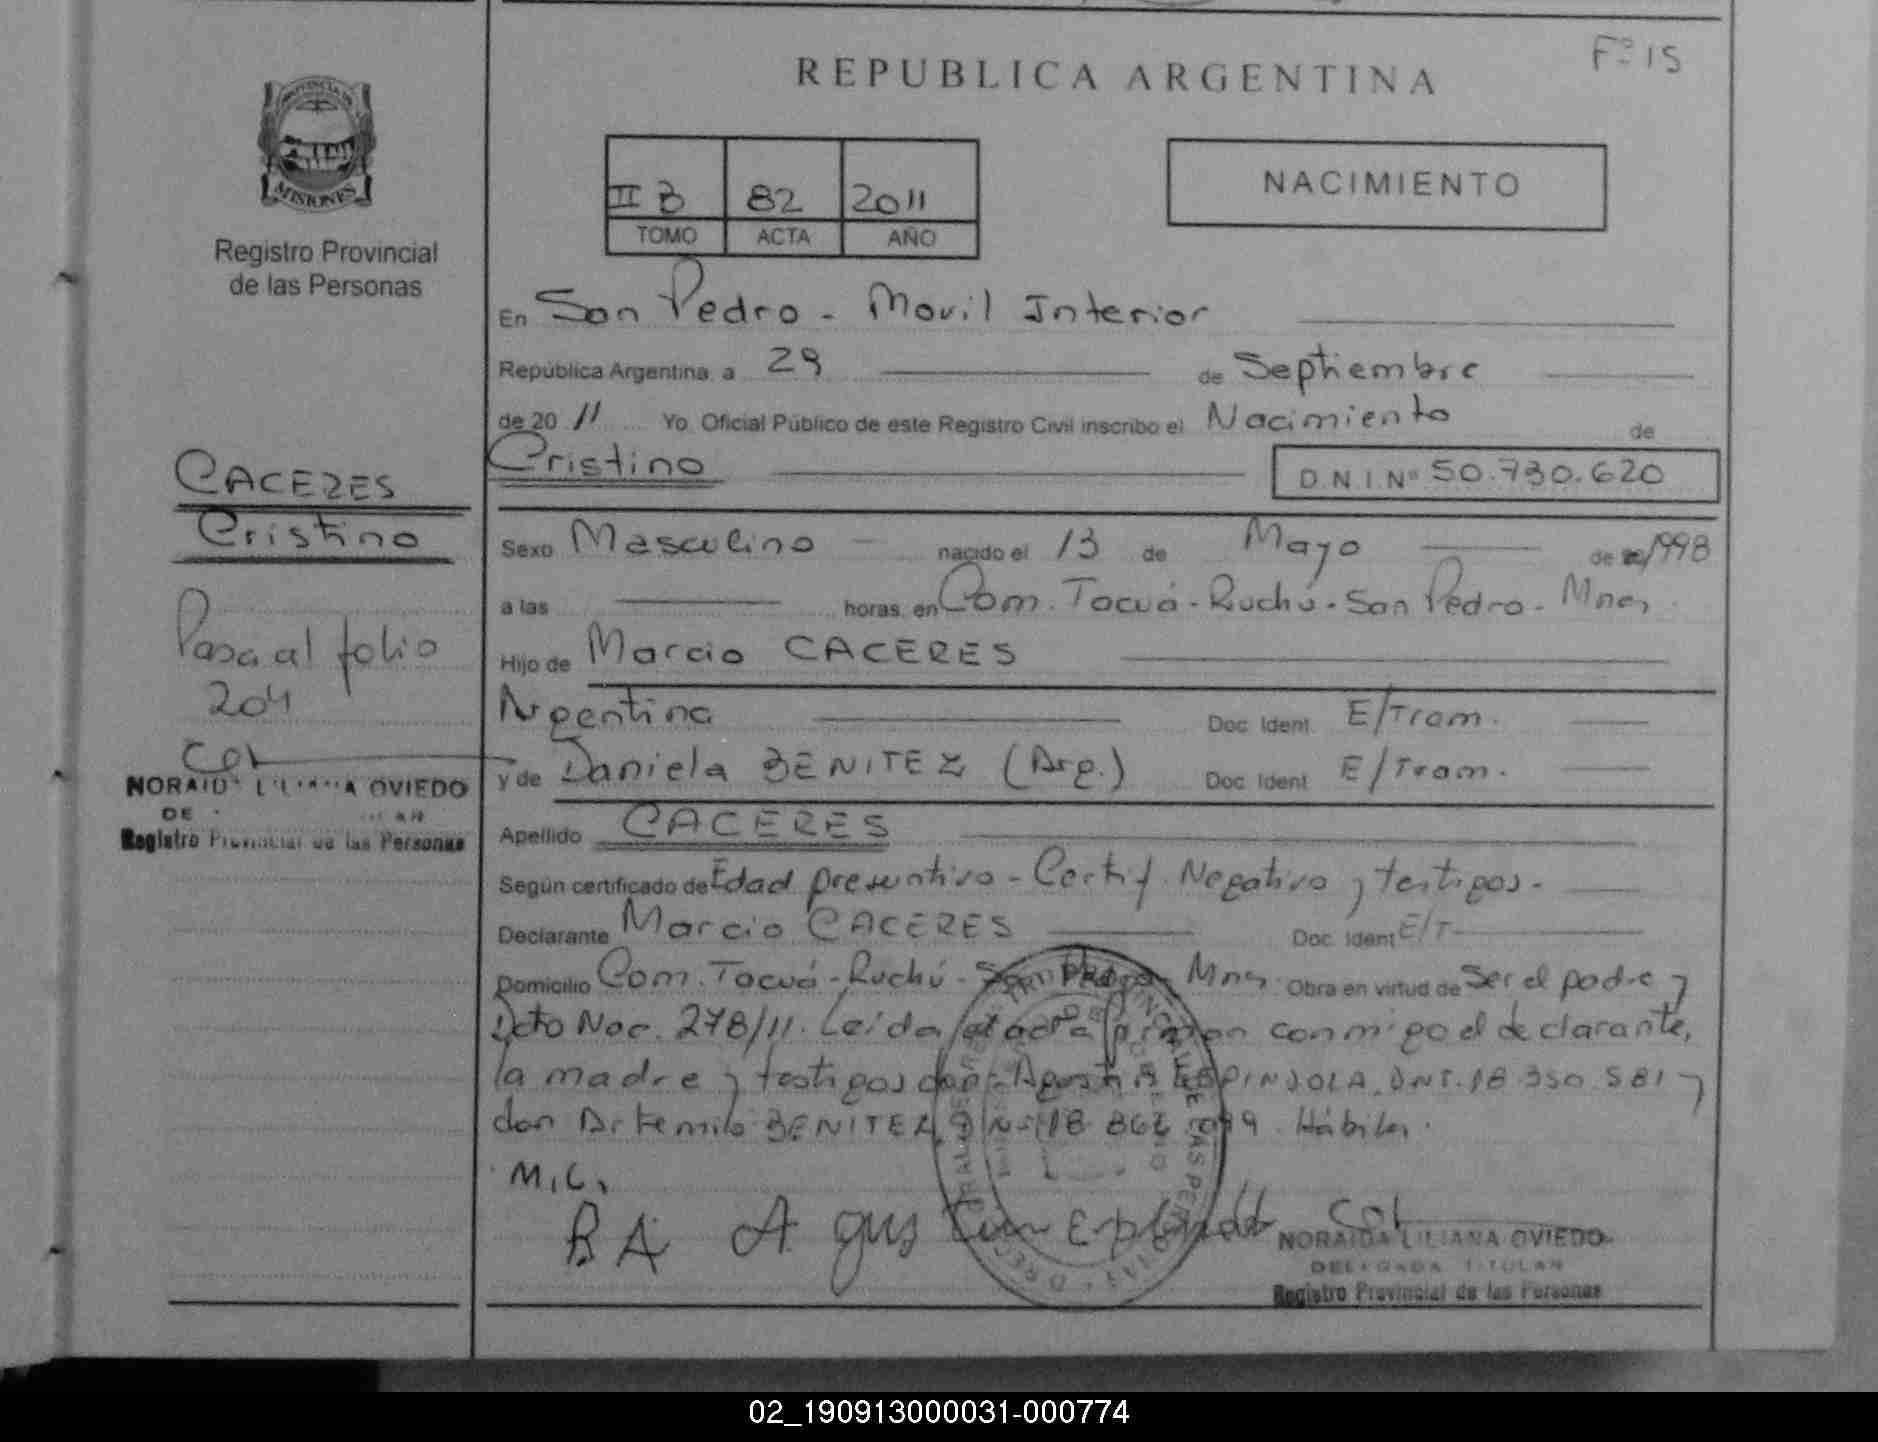 Fº 15
REPUBLICA ARGENTINA
PROVINCIA DE
MISIONES
Registro Provincial
de las Personas
II B 82 2011
TOMO ACTA AÑO
NACIMIENTO
En San Pedro - Movil Interior
República Argentina a 29 de Septiembre
de 20 11 Yo Oficial Público de este Registro Civil inscribo el Nacimiento de
Cristino D.N.I. Nº 50.730.620
CACERES
Cristino
Pasa al folio
204
NORAIDA LILIANA OVIEDO
Registro Provincial de las Personas
Sexo Masculino nacido el 13 de Mayo de 1998
a las horas, en Com. Tacuá-Ruchú-San Pedro-Mnes
Hijo de Marcio CACERES
Argentina Doc. Ident. E/Tram.
y de Daniela BENITEZ (Arg.) Doc. Ident. E/Tram.
Apellido CACERES
Según certificado de Edad presuntiva - Certif. Negativo y testigos.-
Declarante Marcio CACERES Doc. Ident E/T
Domicilio Com. Tacuá-Ruchú-San Pedro Mnes Obra en virtud de Ser el padre y
Dcto Nac. 278/11. Leída el acta firman conmigo el declarante,
la madre y testigos don Agustin ESPINDOLA DNI. 18.350.581 y
don Artemio BENITEZ DNI 18.862. Hábiles.
M.C,
BA Agustin
NORAIDA LILIANA OVIEDO
DELEGADA TITULAR
Registro Provincial de las Personas
02_190913000031-000774